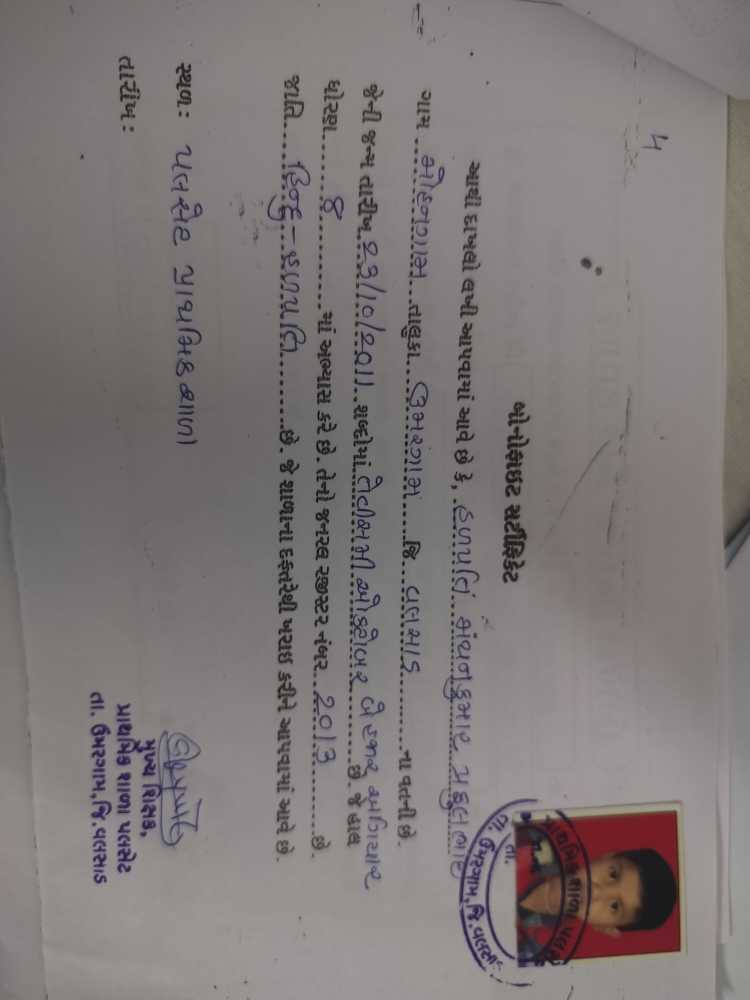 4
બોનોફાઇટ સર્ટીફિકેટ
આથી દાખલો લખી આપવામાં આવે છે કે, હળપતિ મંથનકુમાર
ગામ મોહનગામ તાલુકા ઉમરગામ જિ વલસાડ ના વતની છે.
જેની જન્મ તારીખ ૨૩/૧૦/૨૦૧૧ શબ્દોમાં તેવીસમી ઓક્ટોબર બે હજાર અગિયાર છે. જે હાલ
ધોરણ ૪ માં અભ્યાસ કરે છે. તેનો જનરલ રજીસ્ટર નંબર ૨૦૧૩ છે.
જાતિ હિન્દુ - હળપતિ છે. જે શાળાના દફતરેથી ખરાઇ કરીને આપવામાં આવે છે.
સ્થળ: પલસેટ પ્રાથમિક શાળા
તારીખ:
મુખ્ય શિક્ષક,
પ્રાથમિક શાળા પલસેટ
તા. ઉમરગામ, જિ. વલસાડ
પ્રાથમિક શાળા
તા. ઉમરગામ, જિ. વલસાડ